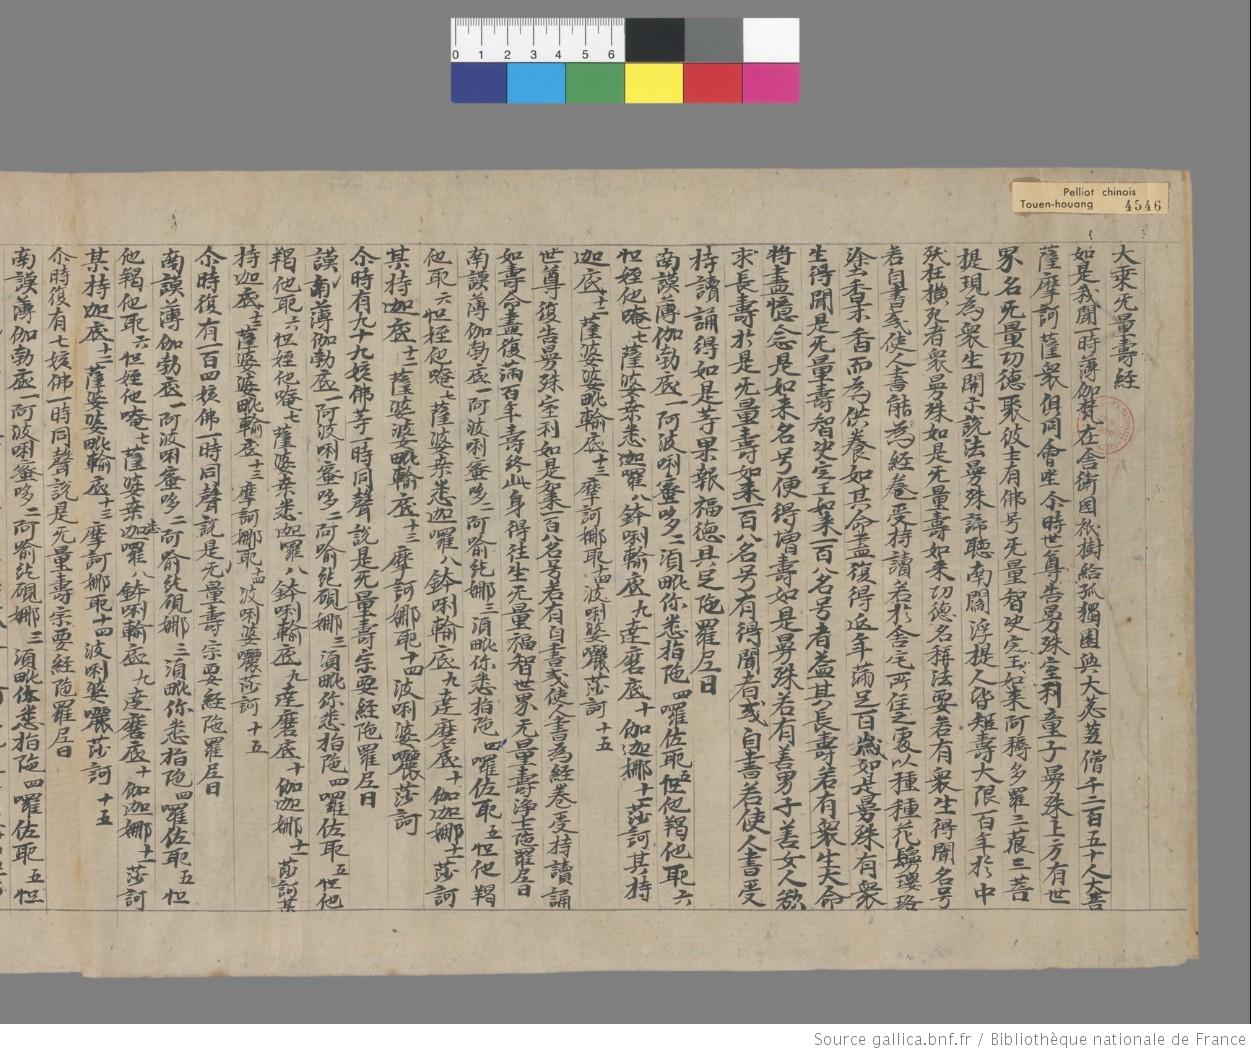 Pelliot chinois
Touen-houang 4546
0 1 2 3 4 5 6
大乘无量壽經
如是我聞一時薄伽梵在舍衛國祇樹給孤獨園與大苾芻僧千二百五十人大菩
薩摩訶薩眾俱同會坐尒時世尊告曼殊室利童子曼殊上方有世
界名无量功德聚彼土有佛号无量智决定王如来阿耨多羅三藐三菩
提現為衆生開示說法曼殊諦聽南閻浮提人皆短壽大限百年於中
殀枉橫死者衆曼殊如是无量壽如来功德名稱法要若有衆生得聞名号
若自書或使人書能為經卷受持讀若於舍宅所住之處以種種花鬘瓔珞
塗香末香而為供養如其命盡復得延年滿足百歲如是曼殊有衆
生得聞是无量壽智决定王如来一百八名号者益其長壽若有衆生大命
將盡憶念是如来名号便得增壽如是曼殊若有善男子善女人欲
求長壽於是无量壽如来一百八名号有得聞者或自書若使人書受
持讀誦得如是等果報福德具足陁羅尼曰
南謨薄伽勃底一阿波唎蜜哆二湏毗你悉指陁四囉佐耶五怛他羯他耶六
怛姪他唵七薩婆桒悉迦囉八鉢唎輸底九達磨底十伽迦娜十一莎訶其持
迦底十二薩婆婆毗輸底十三摩訶娜耶十四波唎婆囇莎訶十五
世尊復告曼殊室利如是如来一百八名号若有自書或使人書為經卷受持讀誦
如壽命盡復滿百年壽終此身得往生无量福智世界无量壽淨土陁羅尼曰
南謨薄伽勃底一阿波唎蜜哆二阿喻紇娜三湏毗你悉指陁四囉佐耶五怛他羯
他耶六怛姪他唵七薩婆桒悉迦囉八鉢唎輸底九達磨底十伽迦娜十一莎訶
其持迦底十二薩婆婆毗輸底十三摩訶娜耶十四波唎婆囇莎訶
尒時有九十九姟佛等一時同聲說是无量壽宗要經陁羅尼曰
謨南薄伽勃底一阿波唎蜜哆二阿喻紇硯娜三湏毗你悉指陁四囉佐耶五怛他
羯他耶六怛姪他唵七薩婆桒悉迦囉八鉢唎輸底九達磨底十伽迦娜十一莎訶其
持迦底十二薩婆婆毗輸底十三摩訶娜耶十四波唎婆囇莎訶十五
尒時復有一百四姟佛一時同聲說是无量壽宗要經陁羅尼曰
南謨薄伽勃底一阿波唎蜜哆二阿喻紇硯娜三湏毗你悉指陁四囉佐耶五怛
他羯他耶六怛姪他唵七薩婆桒悉迦囉八鉢唎輸底九達磨底十伽迦娜十一莎訶
其持迦底十二薩婆婆毗輸底十三摩訶娜耶十四波唎婆囇莎訶十五
尒時復有七姟佛一時同聲說是无量壽宗要經陁羅尼曰
南謨薄伽勃底一阿波唎蜜哆二阿喻紇硯娜三湏毗你悉指陁四囉佐耶五怛
Source gallica.bnf.fr / Bibliothèque nationale de France